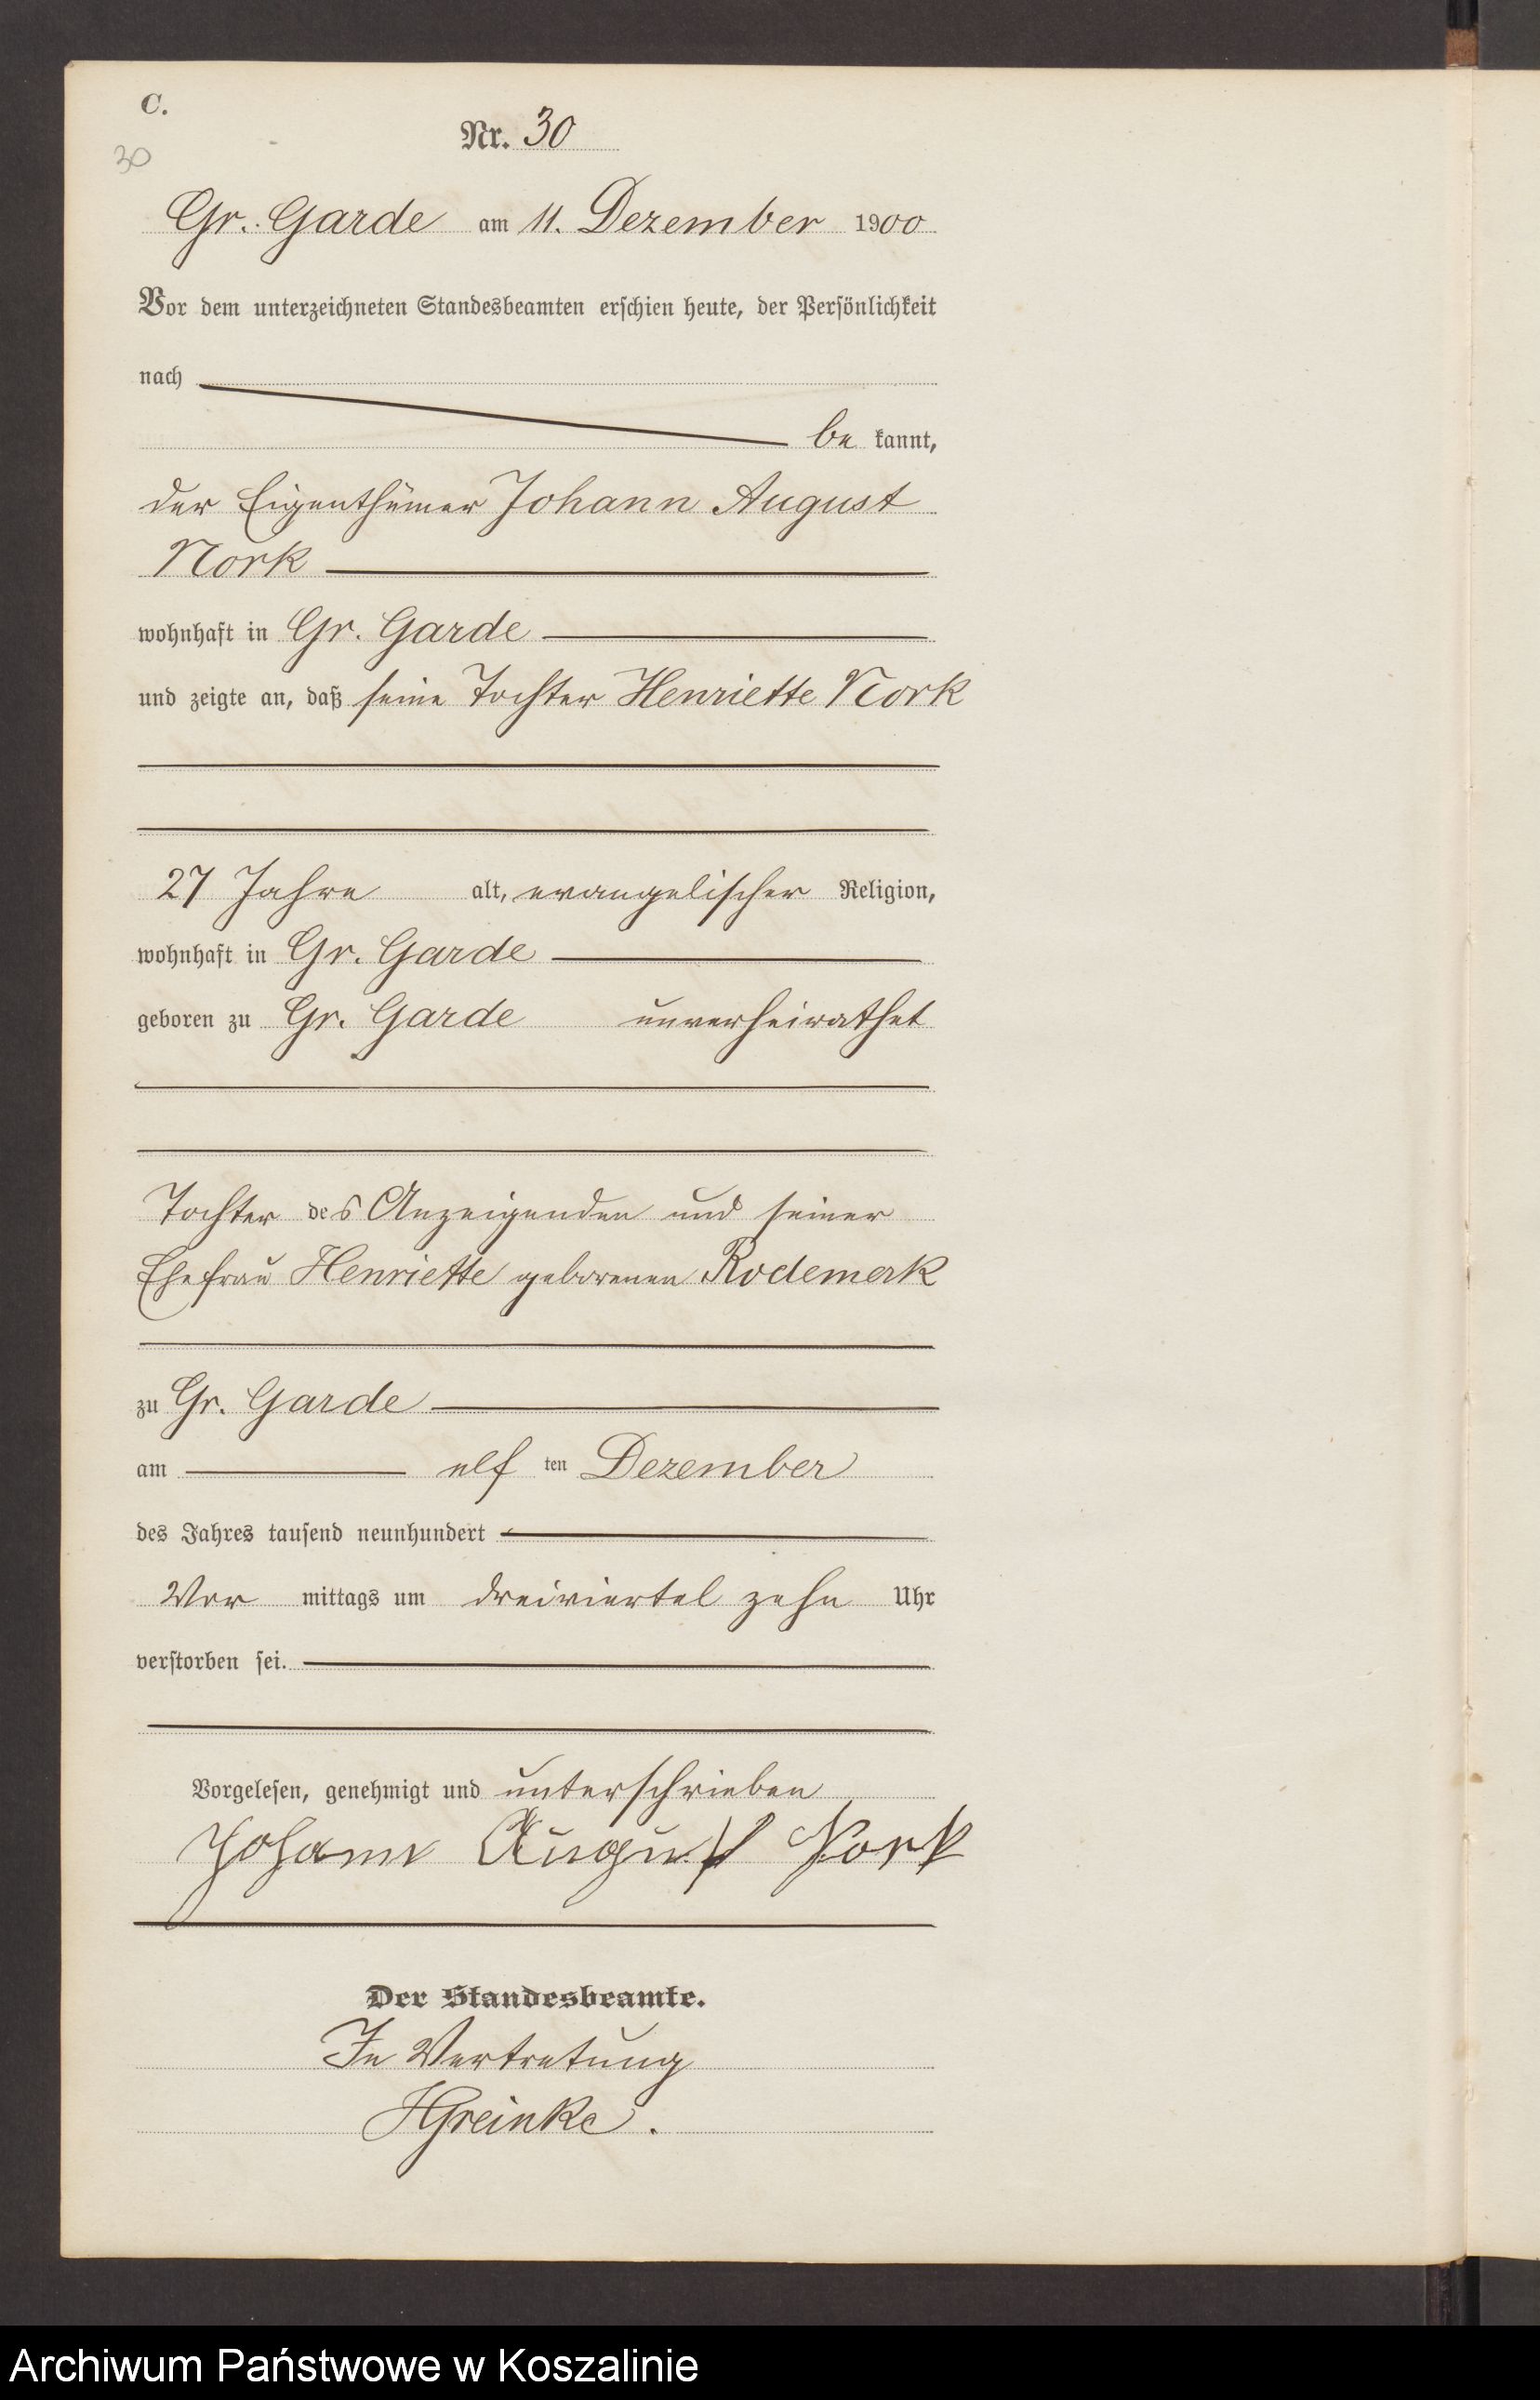 C.
Nr. 30
30
Gr. Garde am 11. Dezember 1900
Vor dem unterzeichneten Standesbeamten erschien heute, der Persönlichkeit
nach
be kannt,
der Eigenthümer Johann August
Nork
wohnhaft in Gr. Garde
und zeigte an, daß seine Tochter Henriette Nork
27 Jahre alt, evangelischer Religion,
wohnhaft in Gr. Garde
geboren zu Gr. Garde unverheirathet
Tochter des Anzeigenden und seiner
Ehefrau Henriette geborenen Rodemerk
zu Gr. Garde
am elf ten Dezember
des Jahres tausend neunhundert
Vor mittags um dreiviertel zehn Uhr
verstorben sei.
Vorgelesen, genehmigt und unterschrieben
Johann August Nork
Der Standesbeamte.
In Vertretung
HGreinke.
Archiwum Państwowe w Koszalinie